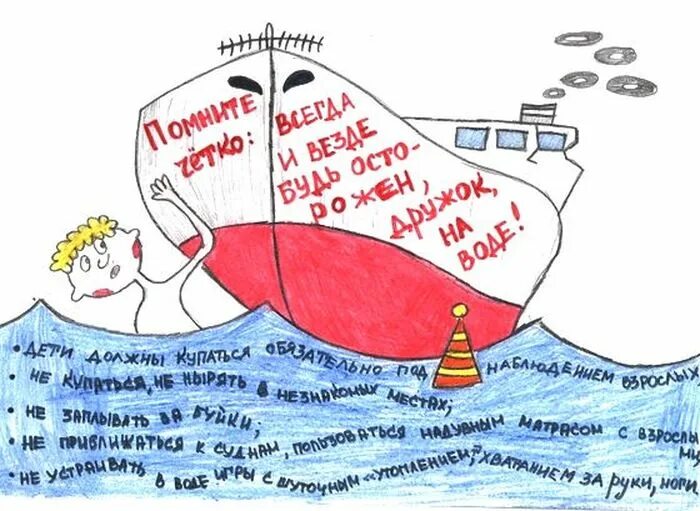 Помните
чётко:
Всегда
и везде
будь осто-
рожен,
дружок,
на
воде!
• Дети должны купаться обязательно под наблюдением взрослых
• Не купаться, не нырять в незнакомых местах;
• Не заплывать за буйки;
• Не приближаться к суднам, пользоваться надувным матрасом с взрослы
ми,
• Не устраивать в воде игры с шуточным «утоплением», хватанием за руки, ноги